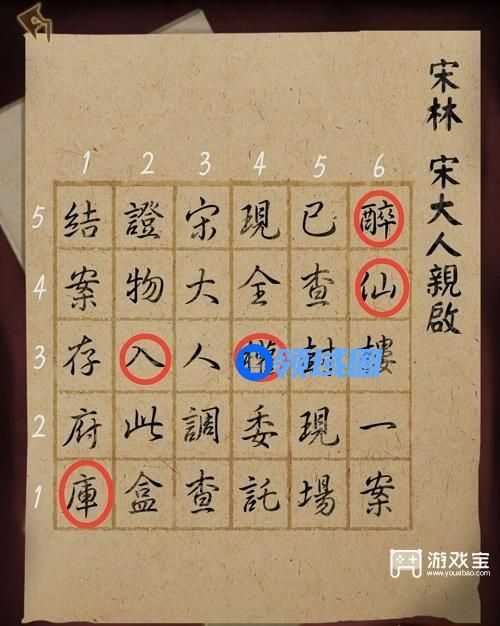 宋林 宋大人親啟
1 2 3 4 5 6
5 4 3 2 1
醉仙樓一案
已查封現場
現全權委託
宋大人調查
證物入此盒
結案存府庫
游戏宝
www.youxibao.com